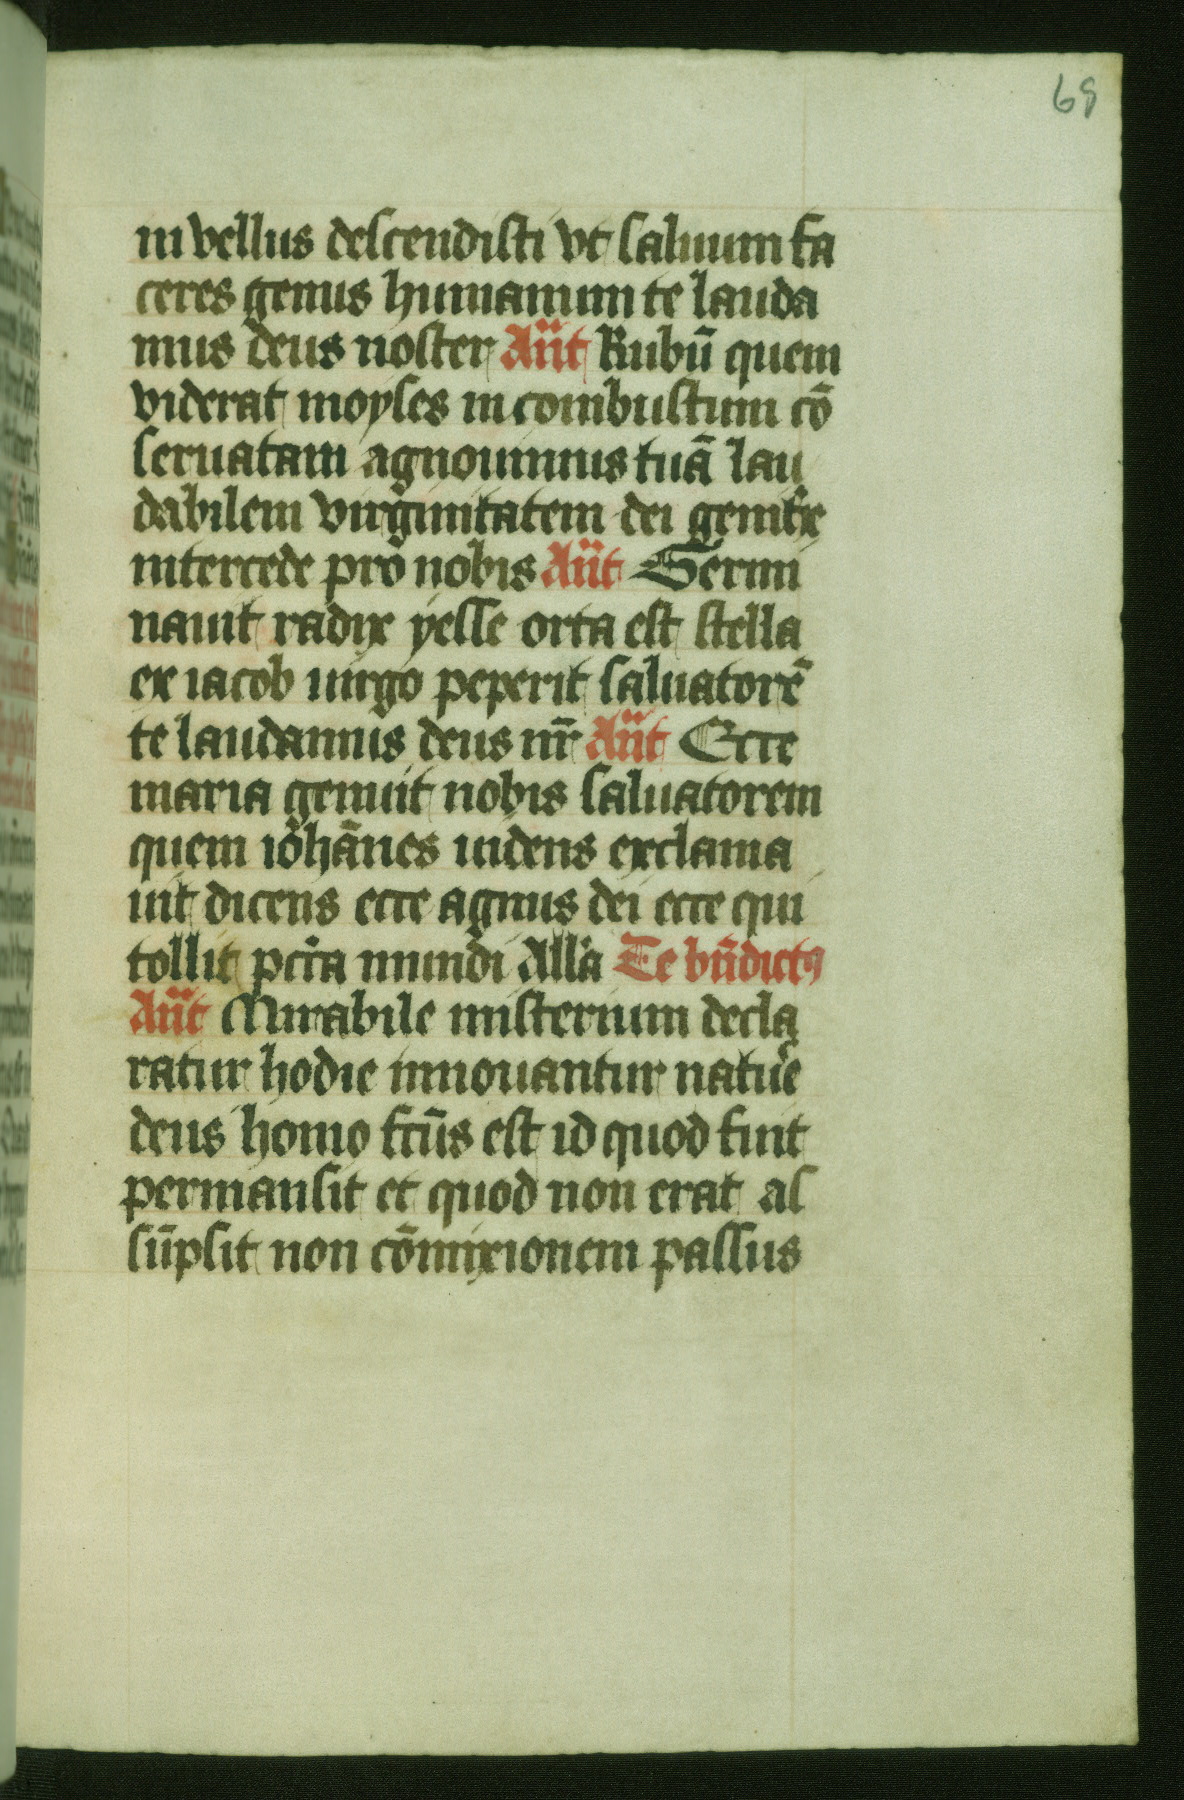 68
in vellus descendisti vt saluum fa
ceres genus humanum te lauda
mus deus noster Añt Rubū quem
viderat moyses in combustum cō
seruatam agnouimus tuā lau
dabilem virginitatem dei genitˢx
intercede pro nobis Añt Germi
nauit radix yesse orta est stella
ex iacob uirgo peperit saluatorē
te laudamus deus nr̄ Añt Ecce
maria genuit nobis saluatorem
quem iohānes uidens exclama
uit dicens ecce agnus dei ecce qui
tollit pctā mundi alla Te bn̄dictꝰ
Añt Mirabile misterium decla
ratur hodie innouantur natu͛e
deus homo fcūs est id quod fuit
permansit et quod non erat as
sūpsit non cōmixionem passus